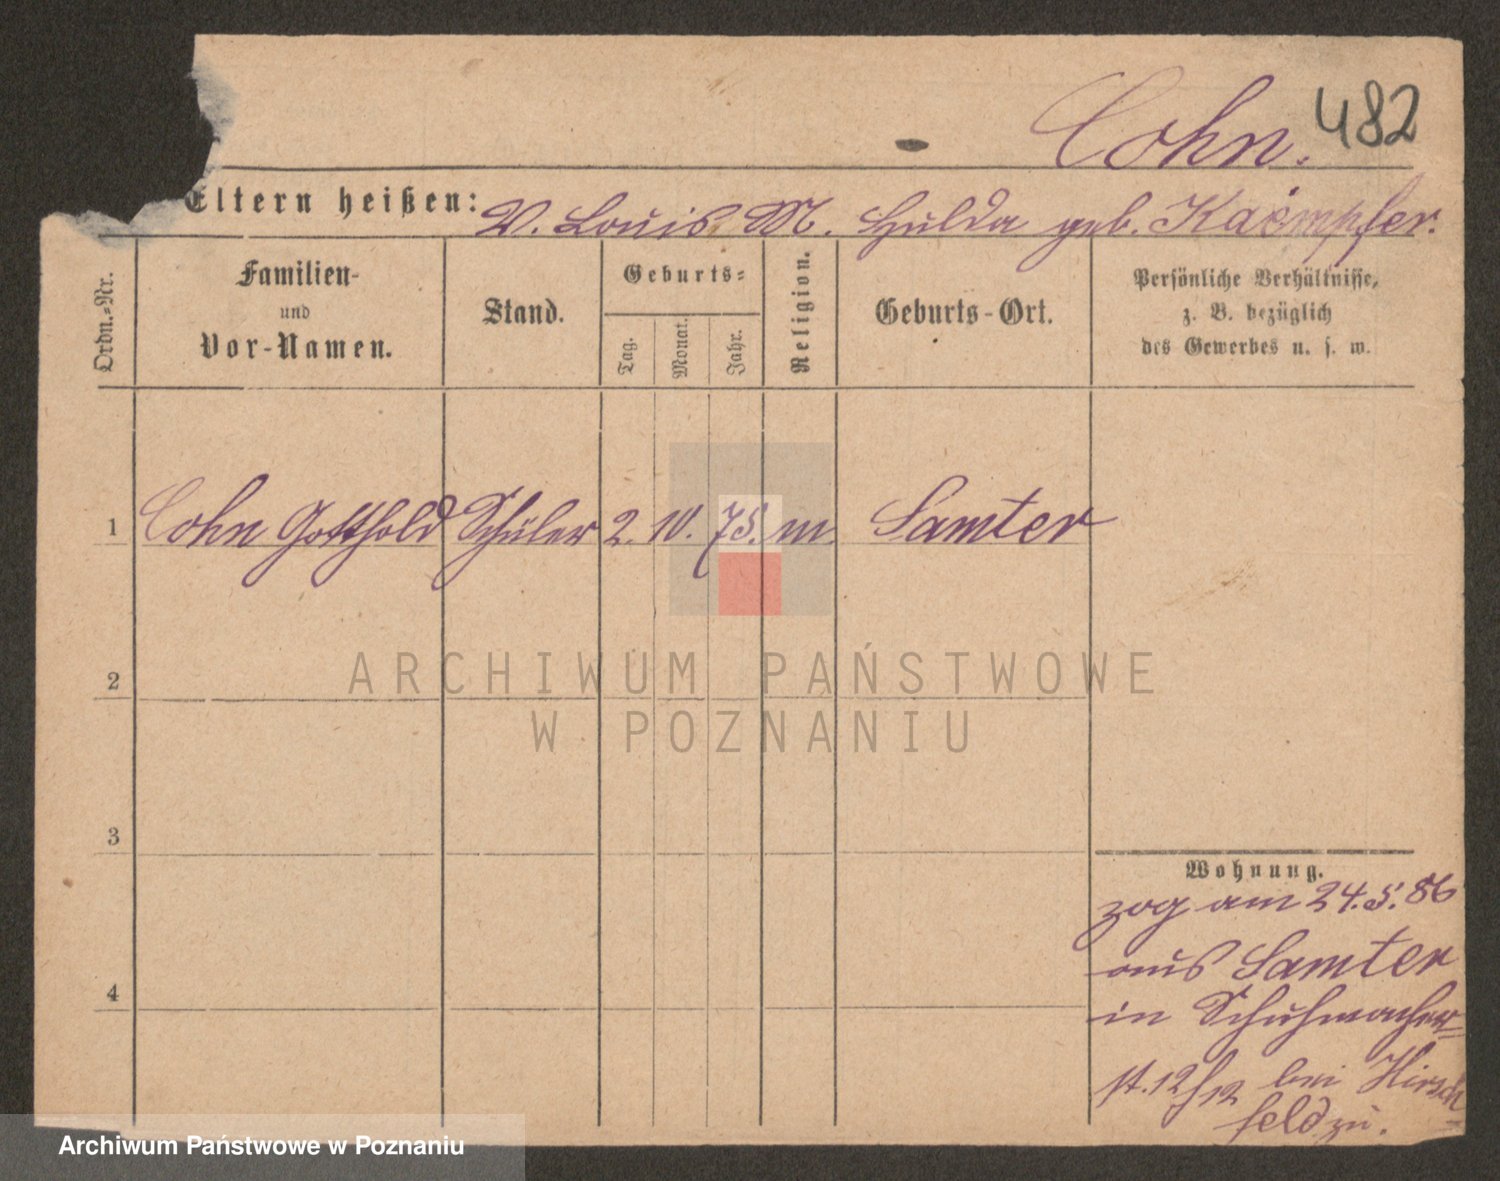 Cohn. 482
Eltern heißen: V. Louis M. Hulda geb. Kaempfer.
Ordn.-Nr.
Familien-
und
Vor-Namen.
Stand.
Geburts-
Tag.
Monat.
Jahr.
Religion.
Geburts-Ort.
Persönliche Verhältnisse,
z. B. bezüglich
des Gewerbes u. s. w.
1 Cohn Gotthold Schüler 2. 10. 75. m. Samter
ARCHIWUM PAŃSTWOWE
W POZNANIU
2
3
4
Wohnung.
zog am 24.5.86
aus Samter
in Schuhmacher-
st. 12/12 bei Hirsch
feld zu.
Archiwum Państwowe w Poznaniu